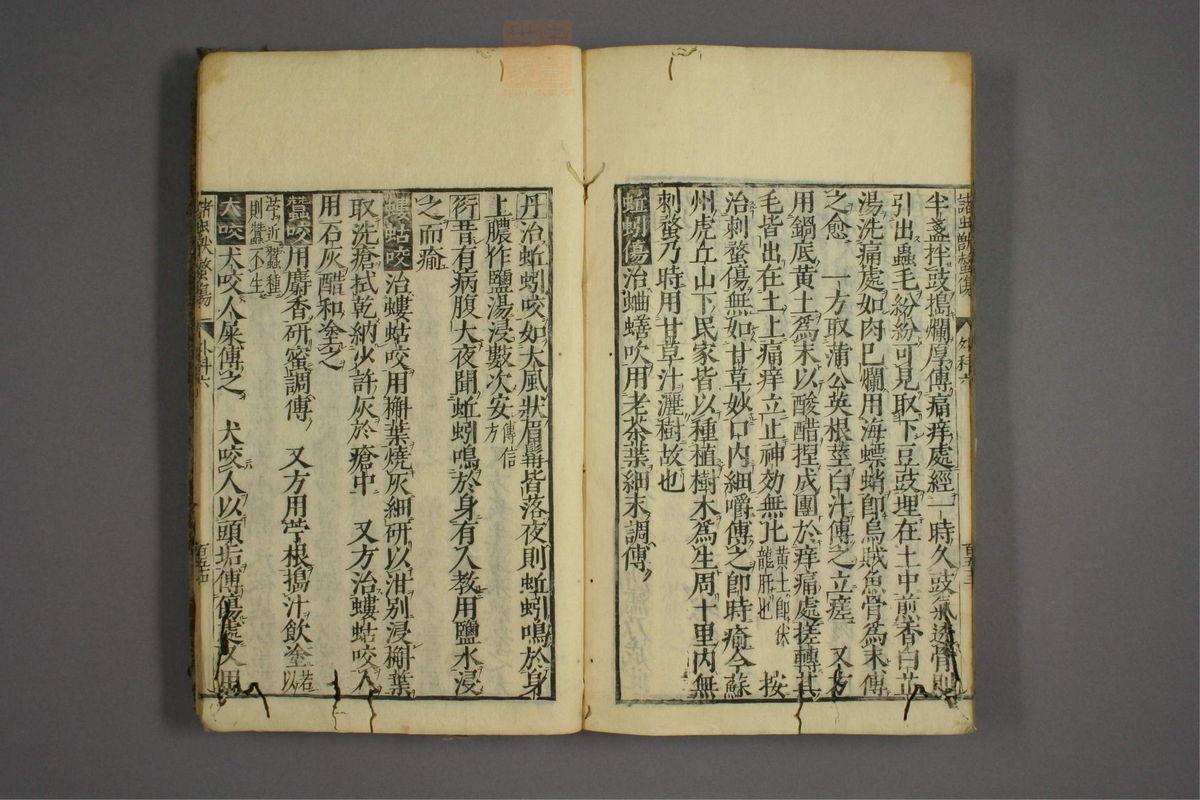 半盞拌豉搗爛厚傅痛痒處經一時久豉氣透骨則
引出蟲毛紛紛可見取下豆豉埋在土中煎香白芷
湯洗痛處如肉已爛用海螵蛸卽烏賊魚骨爲末傅
之愈 一方取蒲公英根莖白汁傅之立瘥 又方
用鍋底黃土爲末以酸醋捏成團於痒痛處搓轉其
毛皆出在土上痛痒立止神効無比黃土卽伏龍肝也 按
治刺螫傷無如甘草妙口內細嚼傅之卽時瘉今蘇
州虎丘山下民家皆以種植樹木爲生周十里內無
刺螫乃時用甘草汁灑樹故也
蚯蚓傷 治蛐蟮吹用老茶葉細末調傅
諸蟲獸螫傷 外科六 百五十三
丹治蚯蚓咬如大風狀眉鬚皆落夜則蚯蚓鳴於身
上膿作鹽湯浸數次安傳信方
衍昔有病腹大夜聞蚯蚓鳴於身有人教用鹽水浸
之而瘉
螻蛄咬 治螻蛄咬用槲葉燒灰細研以泔別浸槲葉
取洗瘡拭乾納少許灰於瘡中 又方治螻蛄咬人
用石灰醋和塗之
蠶咬 用麝香研蜜調傅 又方用苧根搗汁飲塗若以苧近蠶種則蠶不生
犬咬 犬咬人屎傅之 犬咬人以頭垢傅傷處又用
諸蟲獸螫傷 外科六 百五十四